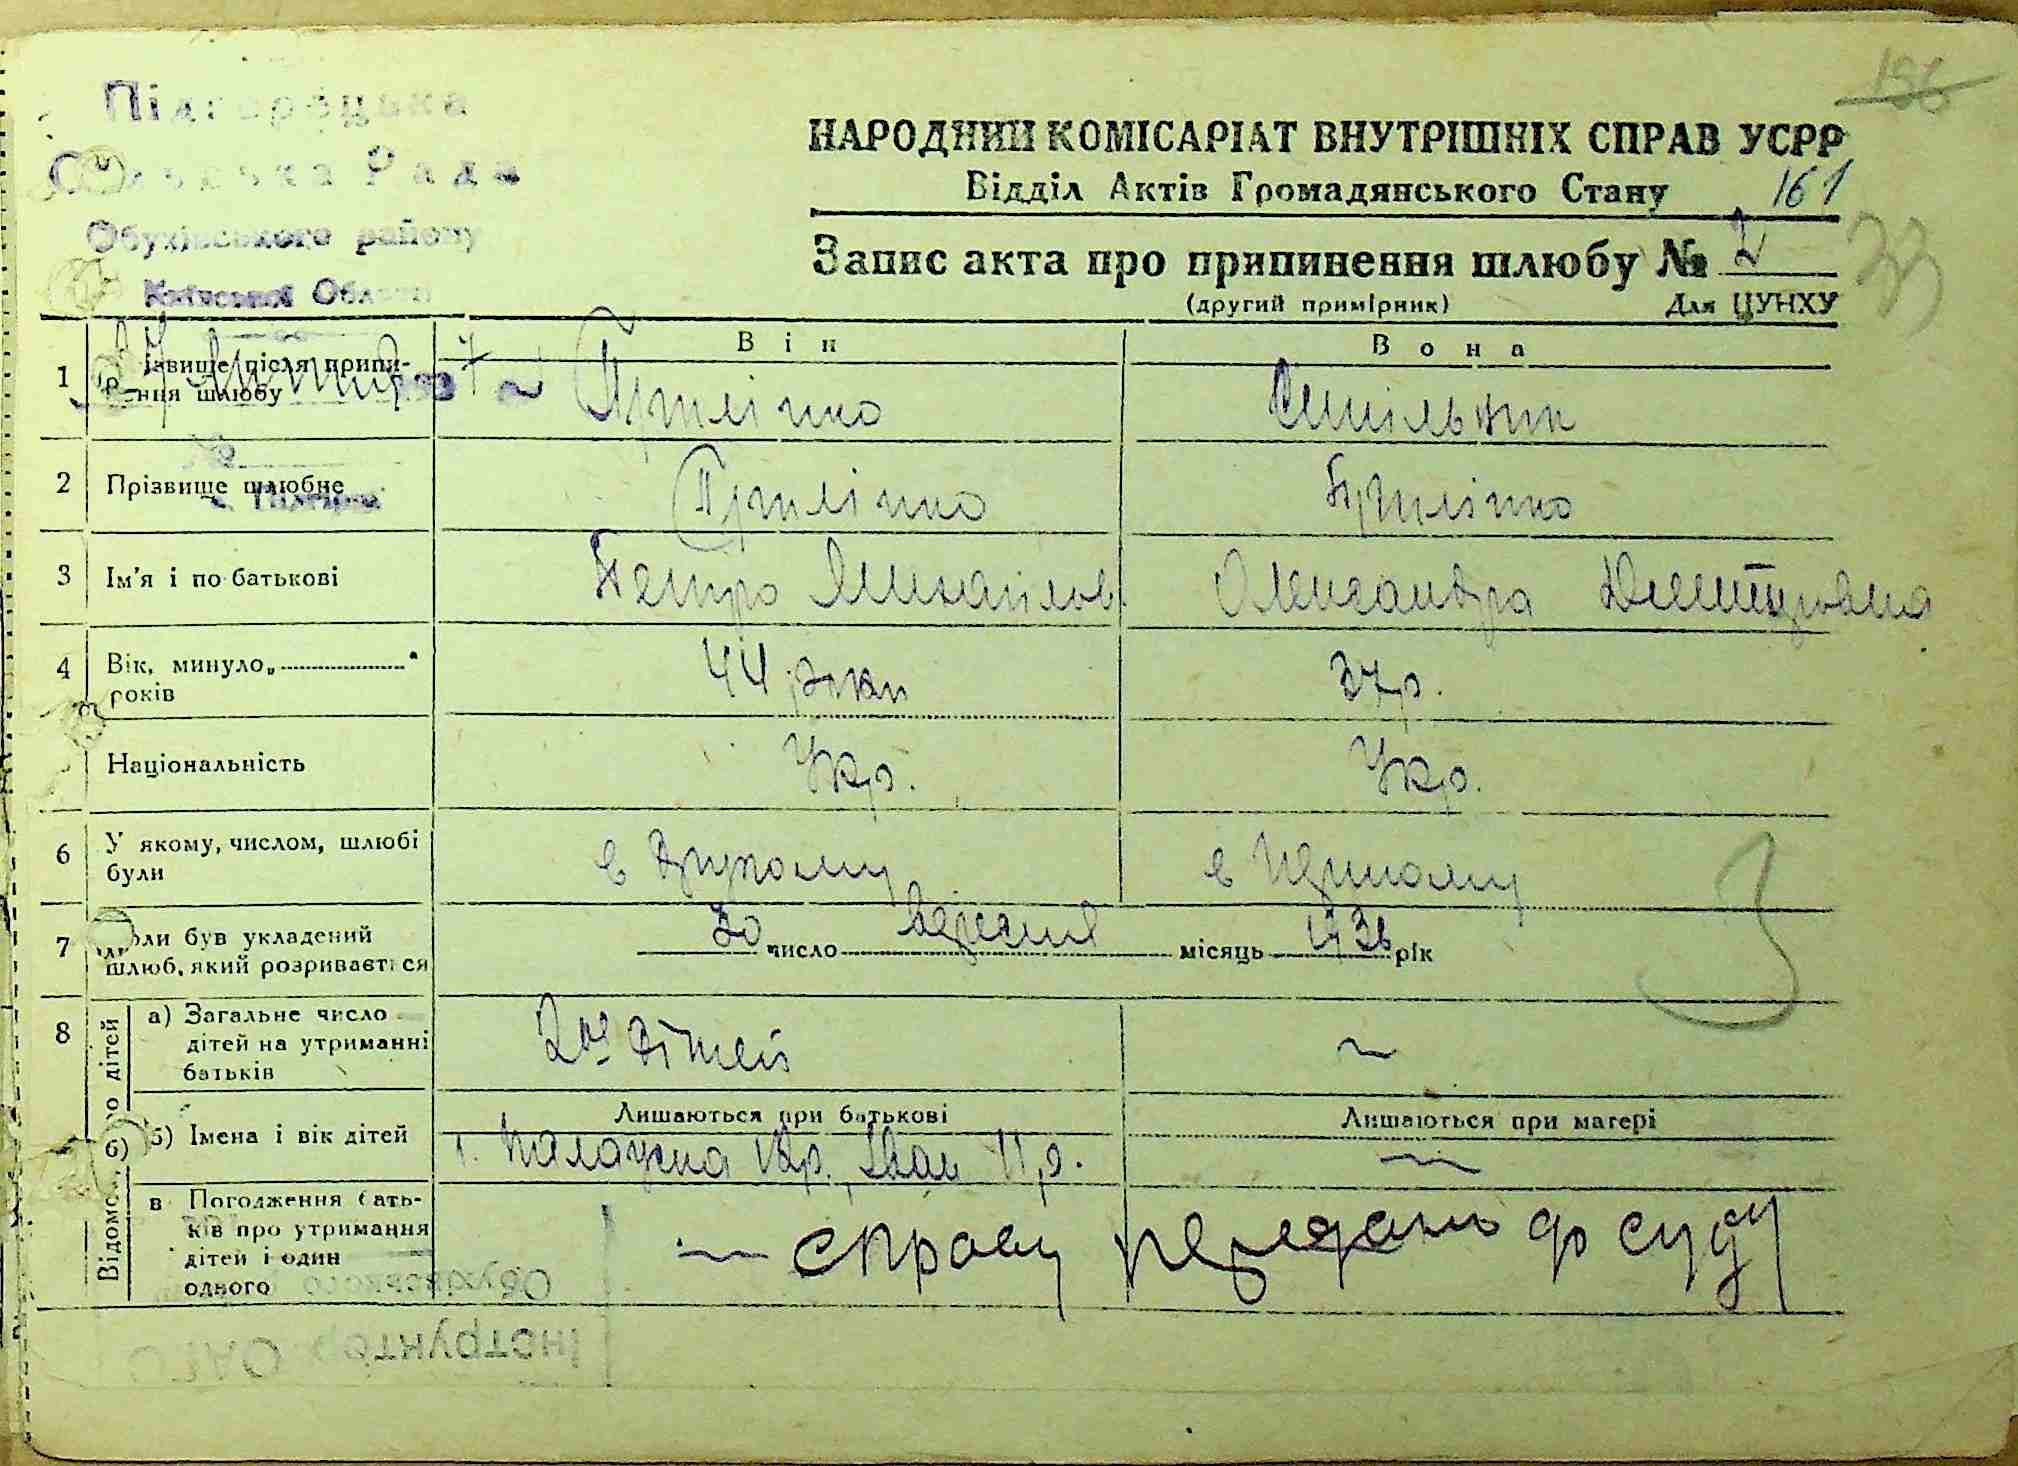 156
Підгорецька
Сільська Рада
Обухівського району
Київської Області
НАРОДНИЙ КОМІСАРІАТ ВНУТРІШНІХ СПРАВ УСРР
Відділ Актів Громадянського Стану 161
Запис акта про припинення шлюбу № 2
33
(другий примірник) Для ЦУНХУ
Він Вона
1 Прізвище після припинення шлюбу Приліпко
2 Прізвище шлюбне Приліпко Приліпко
3 Ім'я і по батькові Петро Михайлов. Олександра Дмитровна
4 Вік, минуло „ “ років 44 роки 37 р.
Національність Укр. Укр.
6 У якому, числом, шлюбі були в другому в першому
7 Коли був укладений шлюб, який розривається 30 число вересня місяць 1936 рік
8 Відомості про дітей
а) Загальне число дітей на утриманні батьків 2ое дітей
Лишаються при батькові Лишаються при матері
б) Імена і вік дітей Іван 11 р.
в Погодження батьків про утримання дітей і один одного справу передано до суду
Обухівського
Інструктор ОАГС